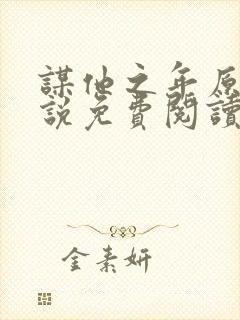 謀他之年原
說免費閱讀
金素妍